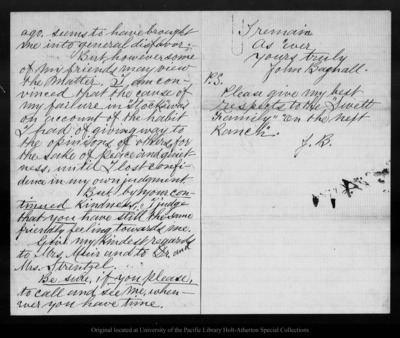 ago, seems to have brought
me into general disfavor.
But however some
of my friends may view
the matter. I am con-
vinced that the cause of
my failure in Stockton was
on account of the habit
I had of giving way to
the opinions of others, for
the sake of peace and quiet-
ness, until I lost confi-
dence in my own judgment
But by your con-
tinued kindness, I judge
that you have still the same
friendly feeling towards me.
Give my kindest regards
to Mrs. Muir and to Dr. and
Mrs. Strentzel.
Be sure, if you please,
to call and see me, when-
ever you have time.
I remain
As Ever
Yours truly
John Bagnall.
P.S.
Please give my best
respects to the "Swett
Family" on the next
Ranch.
J. B.
Original located at University of the Pacific Library Holt-Atherton Special Collections